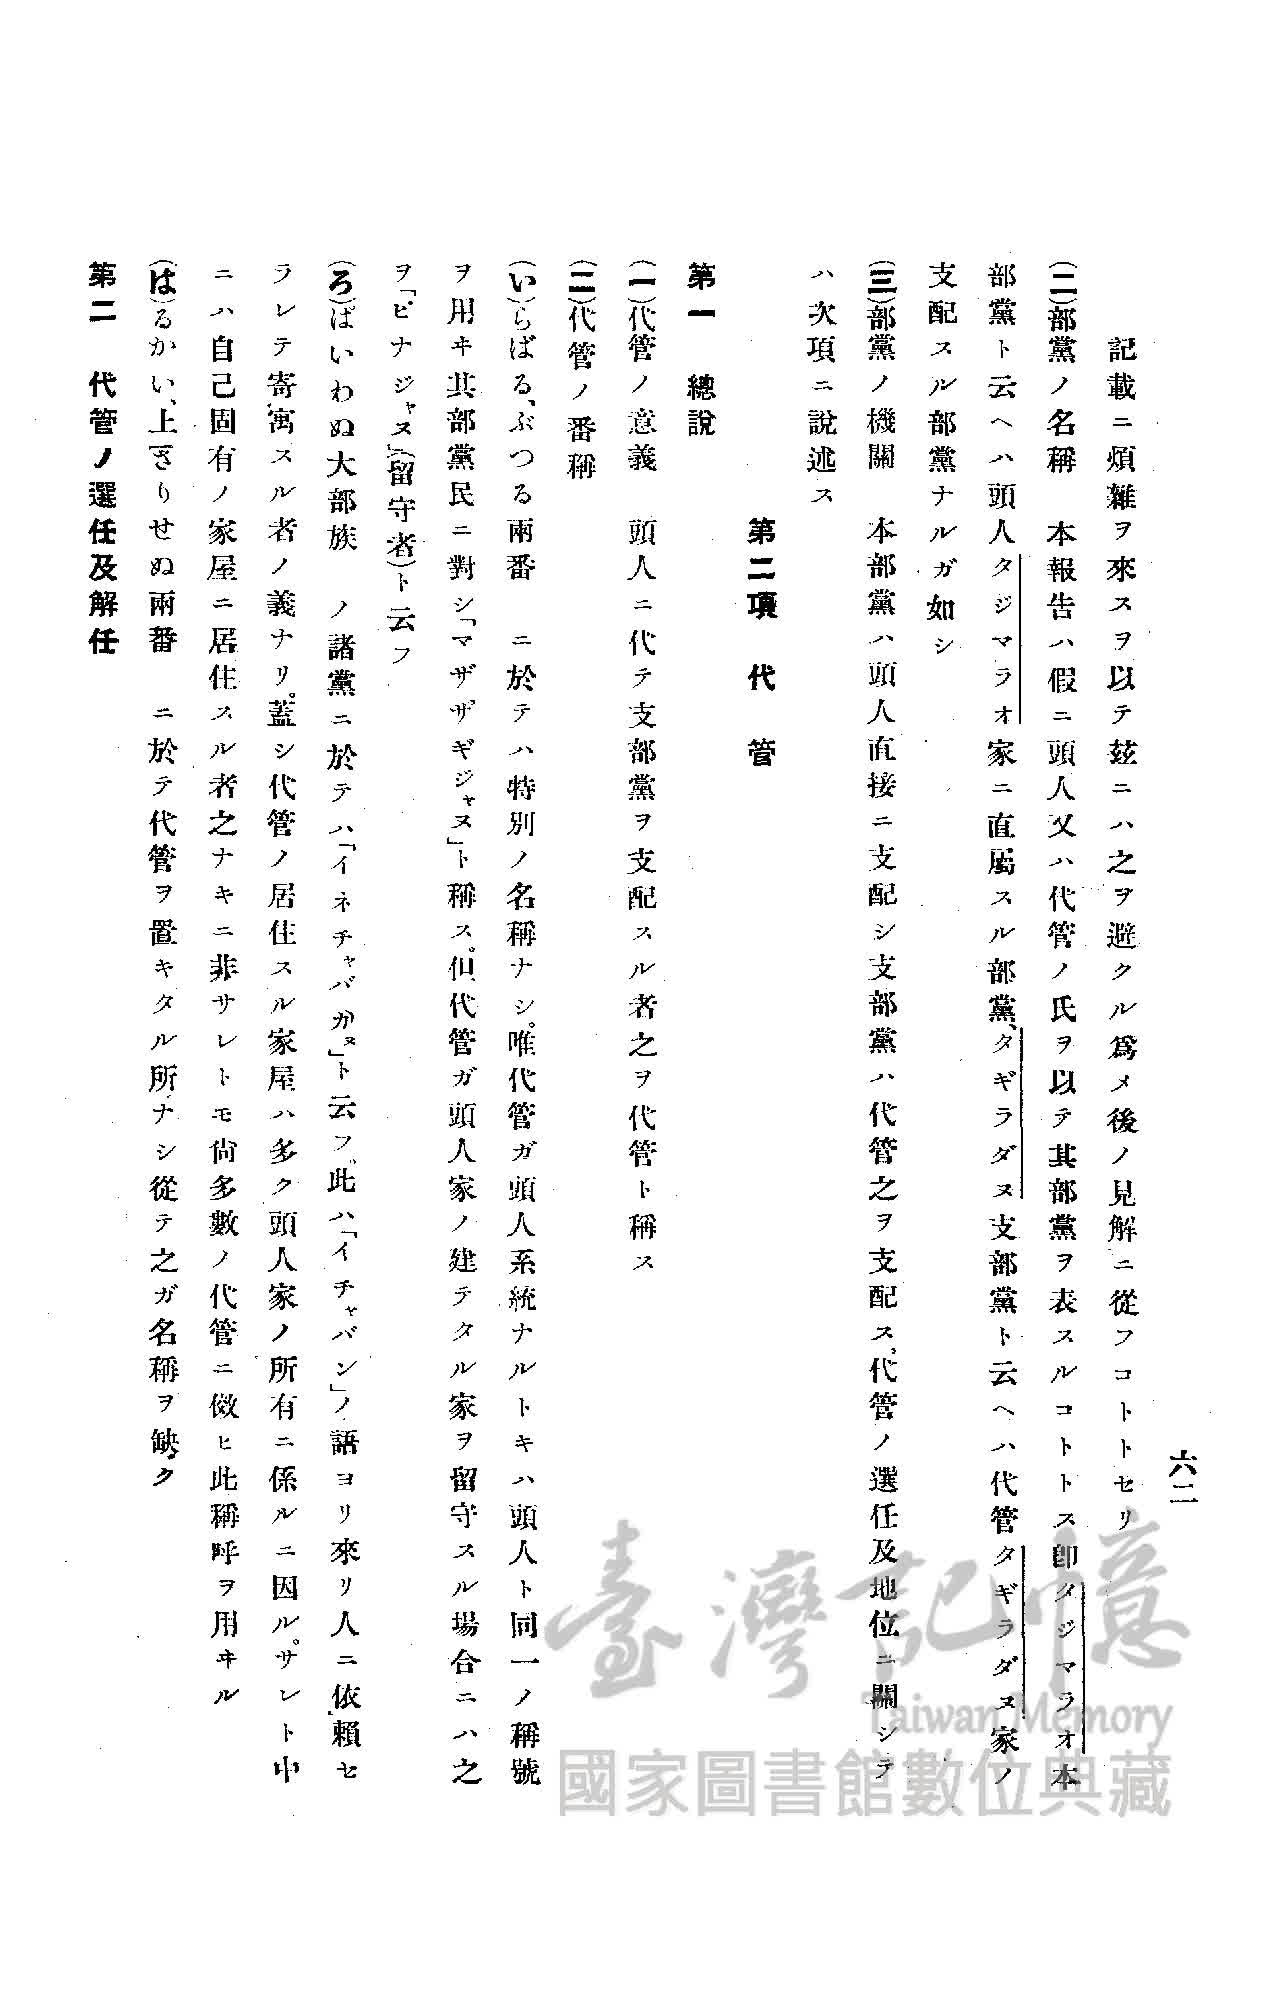 六二
記載ニ煩雜ヲ來スヲ以テ玆ニハ之ヲ避クル爲メ後ノ見解ニ從フコトトセリ
(二)部黨ノ名稱　本報告ハ假ニ頭人又ハ代管ノ氏ヲ以テ其部黨ヲ表スルコトトス卽タジマラオ本
部黨ト云ヘハ頭人タジマラオ家ニ直屬スル部黨、タギラダヌ支部黨ト云ヘハ代管タギラダヌ家ノ
支配スル部黨ナルガ如シ
(三)部黨ノ機關　本部黨ハ頭人直接ニ支配シ支部黨ハ代管之ヲ支配ス。代管ノ選任及地位ニ關シテ
ハ次項ニ說述ス
第二項　代管
第一　總說
(一)代管ノ意義　頭人ニ代テ支部黨ヲ支配スル者之ヲ代管ト稱ス
(二)代管ノ番稱
(い)らばる、ぶつる兩番　ニ於テハ特別ノ名稱ナシ。唯代管ガ頭人系統ナルトキハ頭人ト同一ノ稱號
ヲ用ヰ其部黨民ニ對シ「マザザギジャヌ」ト稱ス。但代管ガ頭人家ノ建テタル家ヲ留守スル場合ニハ之
ヲ「ピナジャヌ」(留守者)ト云フ
(ろ)ぱいわぬ大部族　ノ諸黨ニ於テハ「イネチャバガヌ」ト云フ。此ハ「イチャバン」ノ語ヨリ來リ人ニ依賴セ
ラレテ寄寓スル者ノ義ナリ。蓋シ代管ノ居住スル家屋ハ多ク頭人家ノ所有ニ係ルニ因ル。サレト中
ニハ自己固有ノ家屋ニ居住スル者之ナキニ非サレトモ尙多數ノ代管ニ倣ヒ此稱呼ヲ用ヰル
(は)るかい、上きりせぬ兩番　ニ於テ代管ヲ置キタル所ナシ從テ之ガ名稱ヲ缺ク
第二　代管ノ選任及解任
臺灣記憶
Taiwan Memory
國家圖書館數位典藏